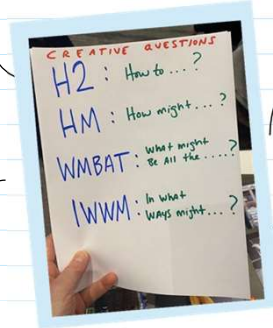 CREATIVE QUESTIONS
H2 : How to ... ?
HM : How might ... ?
WMBAT : What might
Be All the ..... ?
IWWM : In what
WAys might ... ?